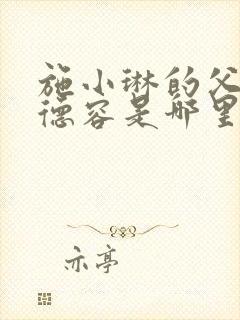 施小琳的父
德容是哪里
亦亭